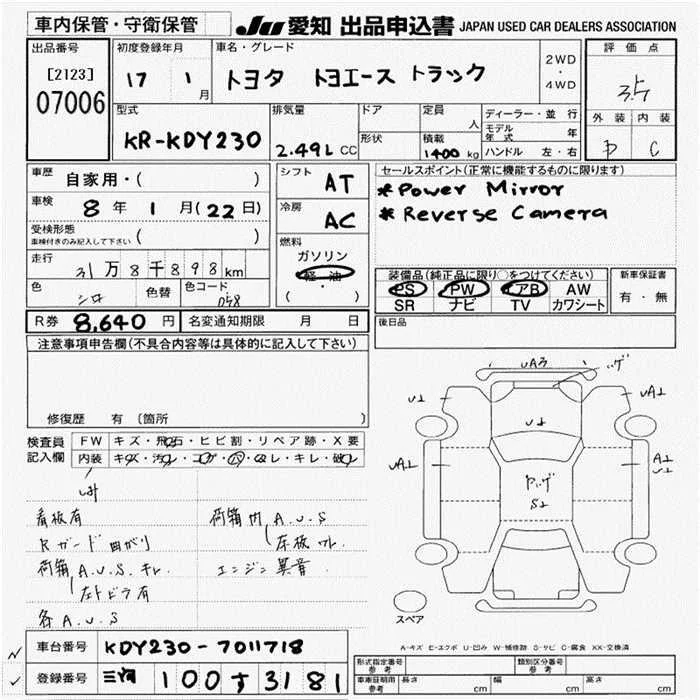 車内保管・守衛保管
JU 愛知 出品申込書 JAPAN USED CAR DEALERS ASSOCIATION
出品番号
[2123]
07006
初度登録年月
17 1月
車名・グレード
トヨタ トヨエース トラック
2WD
・
4WD
評価点
3.5
外装 内装
D C
型式
KR-KDY230
排気量
2.49L CC
ドア
形状
定員
人
積載
1400 kg
ディーラー・並行
モデル年式 年
ハンドル 左・右
車歴 自家用・( )
車検 8年 1月(22日)
受検形態
車検付きのみ記入して下さい ( )
走行
31万8千898km
色 シロ 色替 色コード 058
シフト AT
冷房 AC
燃料
ガソリン
軽・油
( ・ )
セールスポイント(正常に機能するものに限ります)
*Power Mirror
*Reverse Camera
装備品(純正品に限り○をつけてください)
PS PW エアB AW
SR ナビ TV カワシート
新車保証書
有・無
R券 8,640円 名変通知期限 月 日
後日品
注意事項申告欄(不具合内容等は具体的に記入して下さい)
修復歴 有 〔箇所 〕
検査員
記入欄
FW キズ・飛石・ヒビ割・リペア跡・X要
内装 キズ・汚れ・コゲ・穴・スレ・キレ・破れ
看板有
Rガード曲がり
荷箱 A.U.S. キレ
左トビラ有
各 A.U.S
荷箱内 A.U.S
床板ワレ
エンジン異音
UA3
U2
UA2
U2
UA2
A2
U2
S2
スペア
A-キズ E-エクボ U-凹み W-補修跡 S-サビ C-腐食 XX-交換済
車台番号 KDY230-7011718
登録番号 三河 100す3181
形式指定番号
参考
類別区分番号
参考
車庫証明用
参考
長さ cm 幅 cm 高さ cm